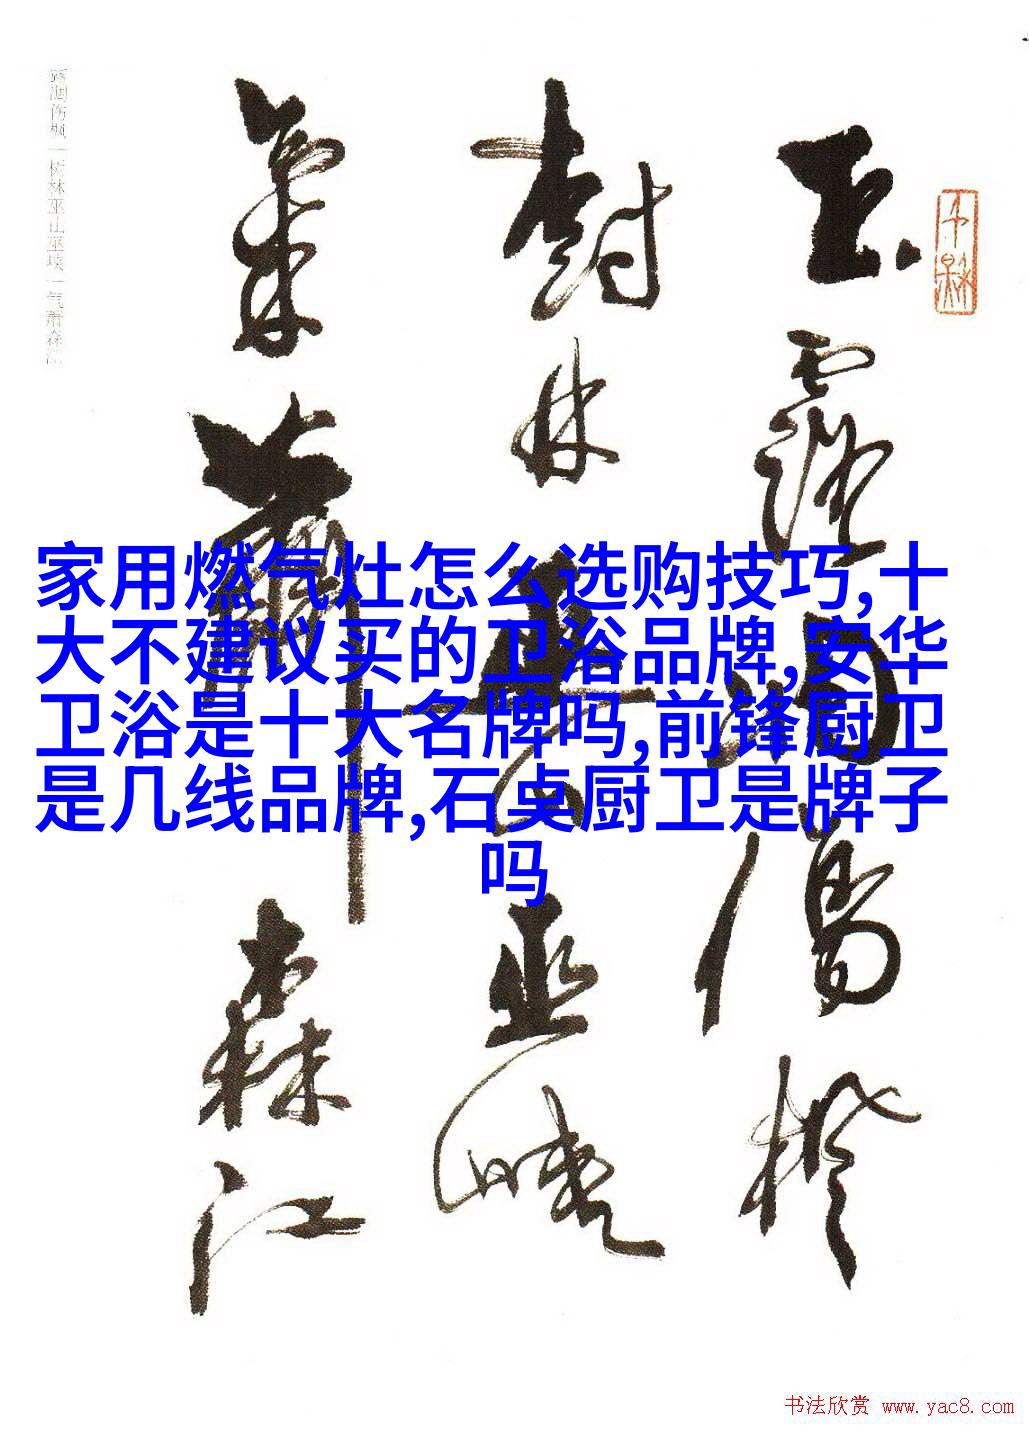 家用燃气灶怎么选购技巧,十
大不建议买的卫浴品牌,安华
卫浴是十大名牌吗,前锋厨卫
是几线品牌,石桌厨卫是牌子
吗
玉露凋伤枫
树林巫山巫峡
气萧森江
露凋伤枫一树林巫山巫峡一气萧森江
书法欣赏 www.yac8.com